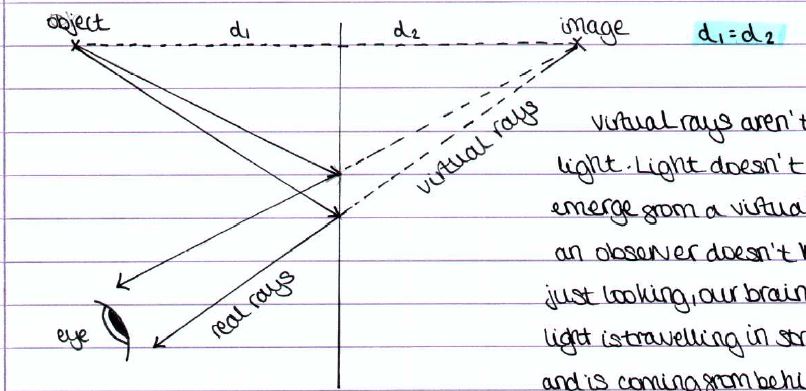 object
d₁
d₂
image
d₁ = d₂
virtual rays
virtual rays aren't
light. Light doesn't
emerge from a virtua
an observer doesn't
just looking, our brain
light is travelling in
and is coming from behi
real rays
eye